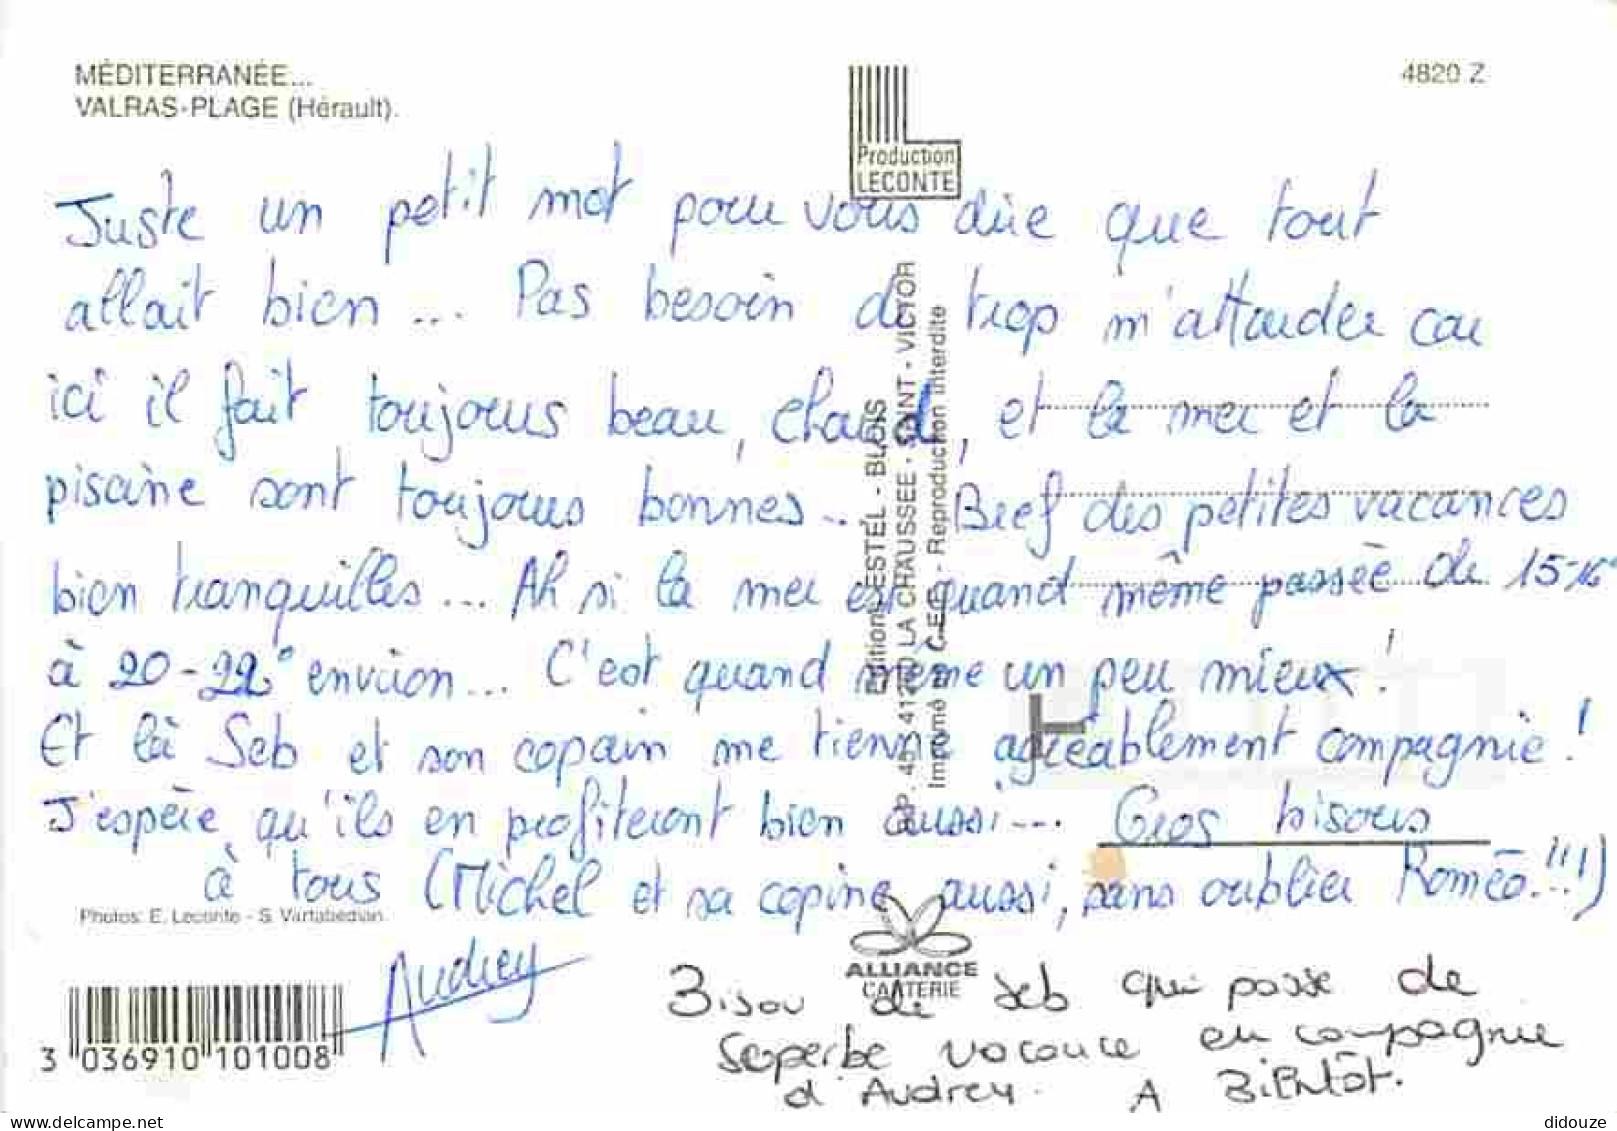 MÉDITERRANÉE...
VALRAS-PLAGE (Hérault).
4820 Z
Production
LECONTE
Juste un petit mot pour vous dire que tout
allait bien... Pas besoin de trop m'attarder car
ici il fait toujours beau, chaud, et la mer et la
piscine sont toujours bonnes... Bref des petites vacances
bien tranquilles... Ah si la mer est quand même passée de 15-16°
à 20-22° environ... C'est quand même un peu mieux !
Et là Seb et son copain me tienne agréablement compagnie !
J'espère qu'ils en profiteront bien aussi... Gros bisous
à tous (Michel et sa copine aussi, sans oublier Roméo!!!)
Audrey
Editions LESTEL - BLOIS
B.P. 45 - 41260 LA CHAUSSEE - SAINT - VICTOR
Imprimé en C.E.E. - Reproduction interdite
Photos: E. Leconte - S. Vartabédian.
ALLIANCE
CARTERIE
3 036910 101008
Bisou de Seb qui passe de
Superbe vacance en compagnie
d'Audrey. A Bientôt.
www.delcampe.net
didouze